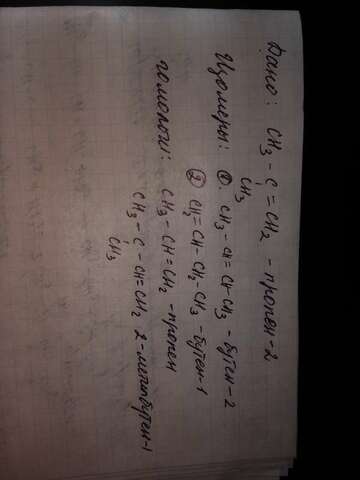 Дано: CH3 - C = CH2 - пропен-2
CH3
Изомеры: ① CH3 - CH = CH - CH3 - бутен-2
② CH2=CH-CH2-CH3-бутен-1
гомологи: CH3 - CH = CH2 - пропен
CH3 - C - CH = CH2 2-метилбутен-1
CH3